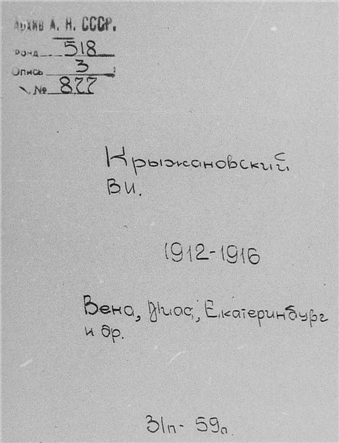 Архив А. Н. СССР.
Фонд 518
Опись 3
№ 822
Крыжановский
В И.
1912-1916
Вена, Миас, Екатеринбург
и др.
31п- 59л.